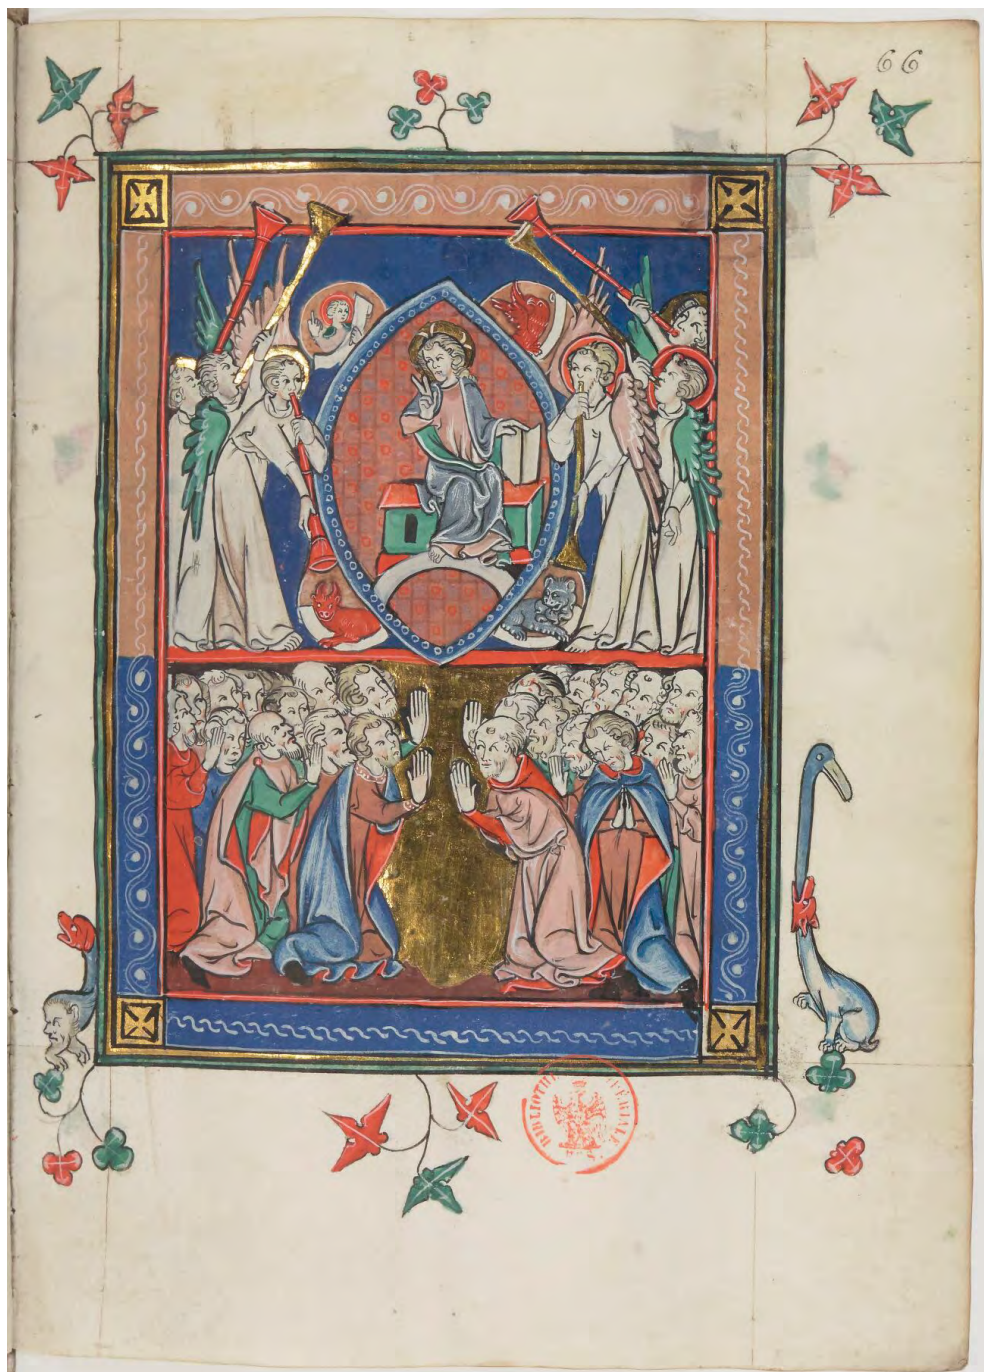 66
BIBLIOTHÈQUE IMPÉRIALE